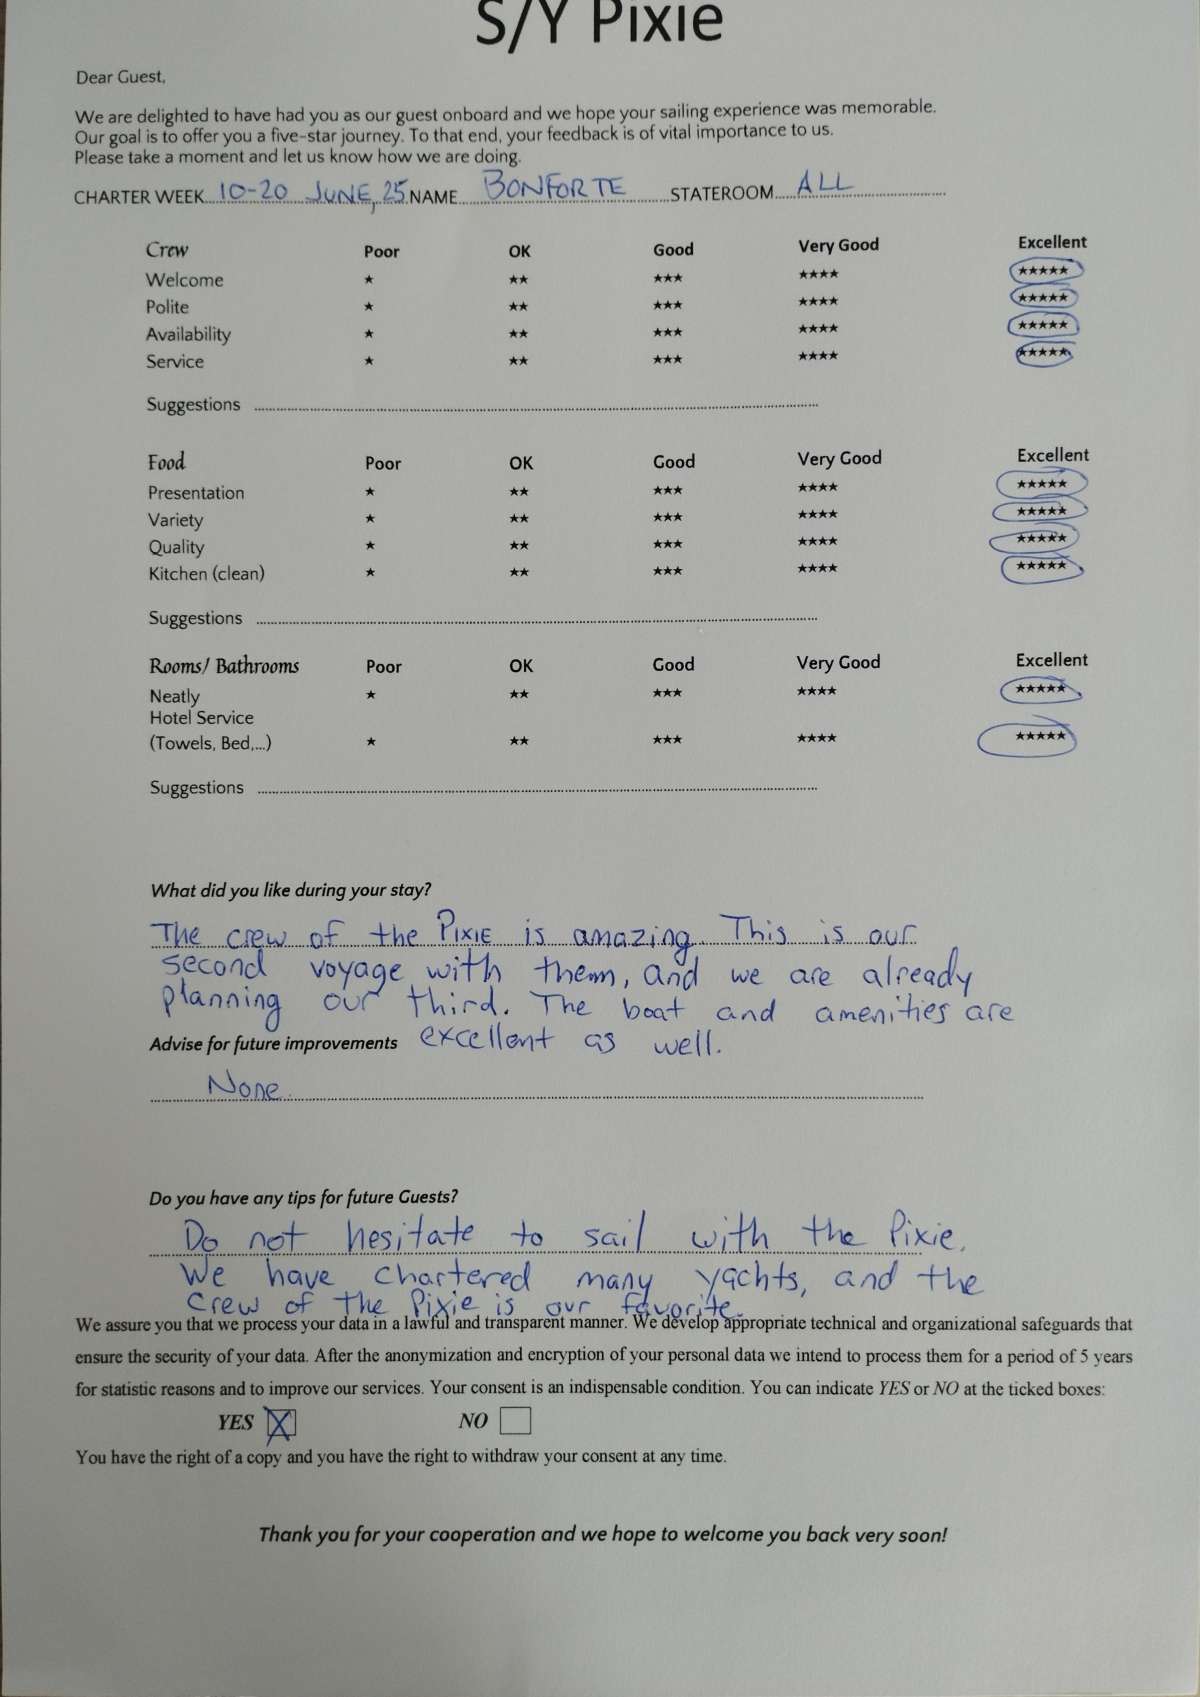 S/Y Pixie
Dear Guest,
We are delighted to have had you as our guest onboard and we hope your sailing experience was memorable.
Our goal is to offer you a five-star journey. To that end, your feedback is of vital importance to us.
Please take a moment and let us know how we are doing.
CHARTER WEEK 10-20 JUNE, 25 NAME BONFORTE STATEROOM ALL
Crew Poor OK Good Very Good Excellent
Welcome ★ ★★ ★★★ ★★★★ ★★★★★
Polite ★ ★★ ★★★ ★★★★ ★★★★★
Availability ★ ★★ ★★★ ★★★★ ★★★★★
Service ★ ★★ ★★★ ★★★★ ★★★★★
Suggestions
Food Poor OK Good Very Good Excellent
Presentation ★ ★★ ★★★ ★★★★ ★★★★★
Variety ★ ★★ ★★★ ★★★★ ★★★★★
Quality ★ ★★ ★★★ ★★★★ ★★★★★
Kitchen (clean) ★ ★★ ★★★ ★★★★ ★★★★★
Suggestions
Rooms/ Bathrooms Poor OK Good Very Good Excellent
Neatly ★ ★★ ★★★ ★★★★ ★★★★★
Hotel Service
(Towels, Bed,...) ★ ★★ ★★★ ★★★★ ★★★★★
Suggestions
What did you like during your stay?
The crew of the PIXIE is amazing. This is our
second voyage with them, and we are already
planning our third. The boat and amenities are
Advise for future improvements excellent as well.
None
Do you have any tips for future Guests?
Do not hesitate to sail with the Pixie.
We have chartered many yachts, and the
crew of the Pixie is our favorite.
We assure you that we process your data in a lawful and transparent manner. We develop appropriate technical and organizational safeguards that
ensure the security of your data. After the anonymization and encryption of your personal data we intend to process them for a period of 5 years
for statistic reasons and to improve our services. Your consent is an indispensable condition. You can indicate YES or NO at the ticked boxes:
YES X NO
You have the right of a copy and you have the right to withdraw your consent at any time.
Thank you for your cooperation and we hope to welcome you back very soon!